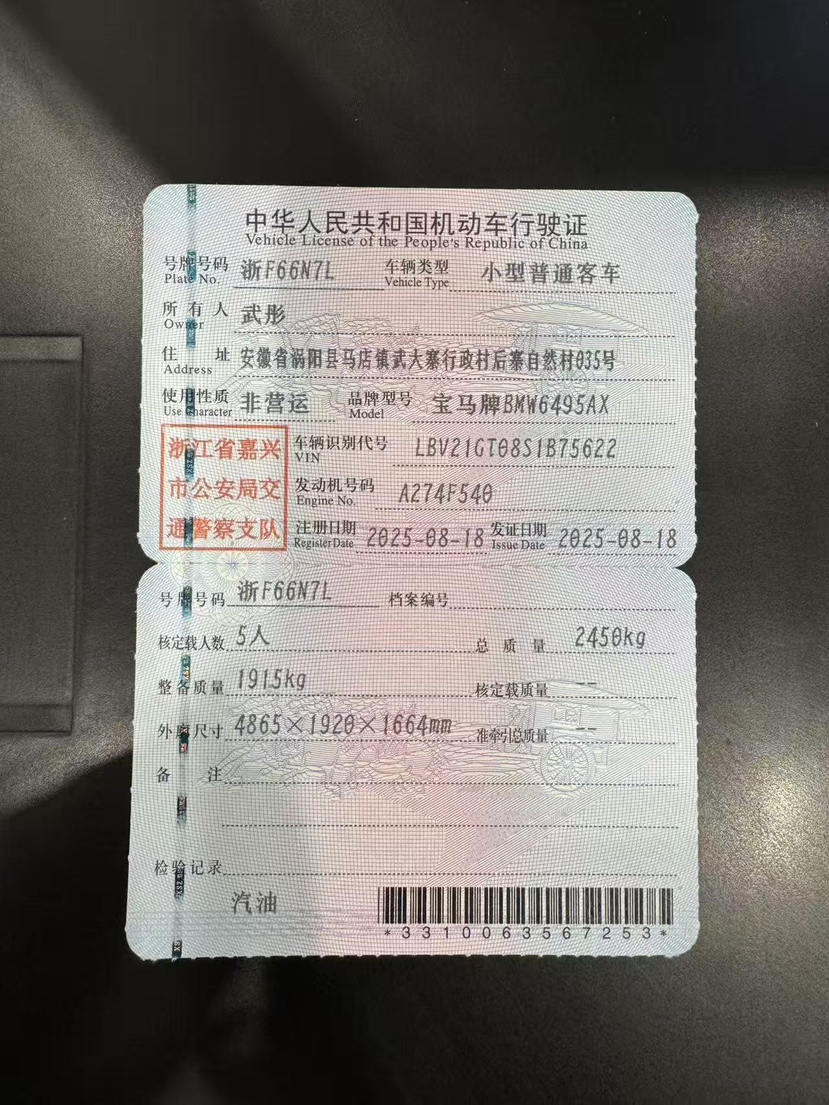 中华人民共和国机动车行驶证
Vehicle License of the People's Republic of China
号牌号码 浙F66N7L 车辆类型 小型普通客车
Plate No. Vehicle Type
所有人 武彤
Owner
住址 安徽省涡阳县马店镇武大寨行政村后寨自然村035号
Address
使用性质 非营运 品牌型号 宝马牌BMW6495AX
Use Character Model
浙江省嘉兴
市公安局交
通警察支队
车辆识别代号 LBV21GT08S1B75622
VIN
发动机号码 A274F540
Engine No.
注册日期 2025-08-18 发证日期 2025-08-18
Register Date Issue Date
号牌号码 浙F66N7L 档案编号
核定载人数 5人 总质量 2450kg
整备质量 1915kg 核定载质量 --
外廓尺寸 4865×1920×1664mm 准牵引总质量 --
备注
检验记录
汽油
*3310063567253*